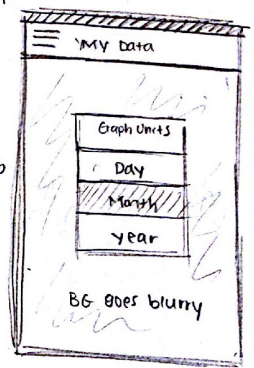 My Data
Graph Units
Day
Month
year
BG Goes blurry